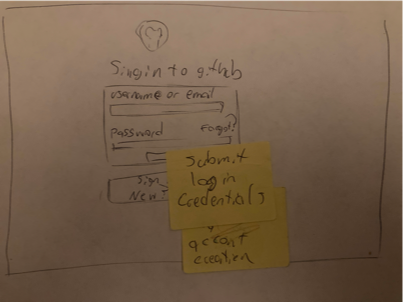 Singin to github
username or email
password Forgot?
Sign
New
Submit
login
Credentials
account
creation